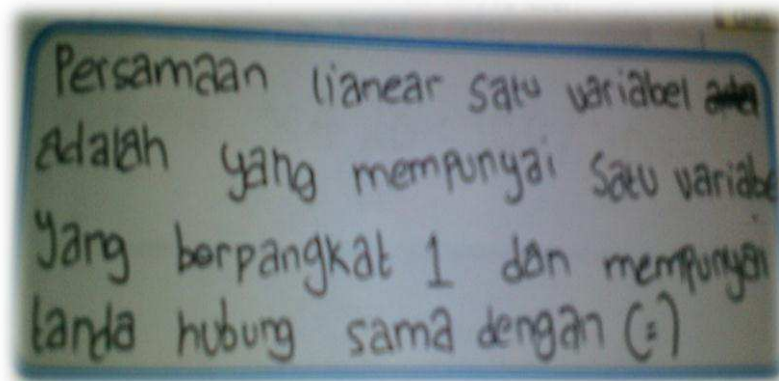 Persamaan lianear satu variabel
adalah yang mempunyai satu variabe
yang berpangkat 1 dan mempunyai
tanda hubung sama dengan (=)